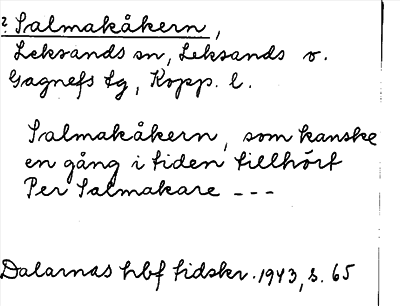 ? Salmakåkern,
Leksands sn, Leksands o.
Gagnefs tg, Kopp. l.
Salmakåkern, som kanske
en gång i tiden tillhört
Per Salmakare ---
Dalarnas hbf tidskr. 1943, s. 65